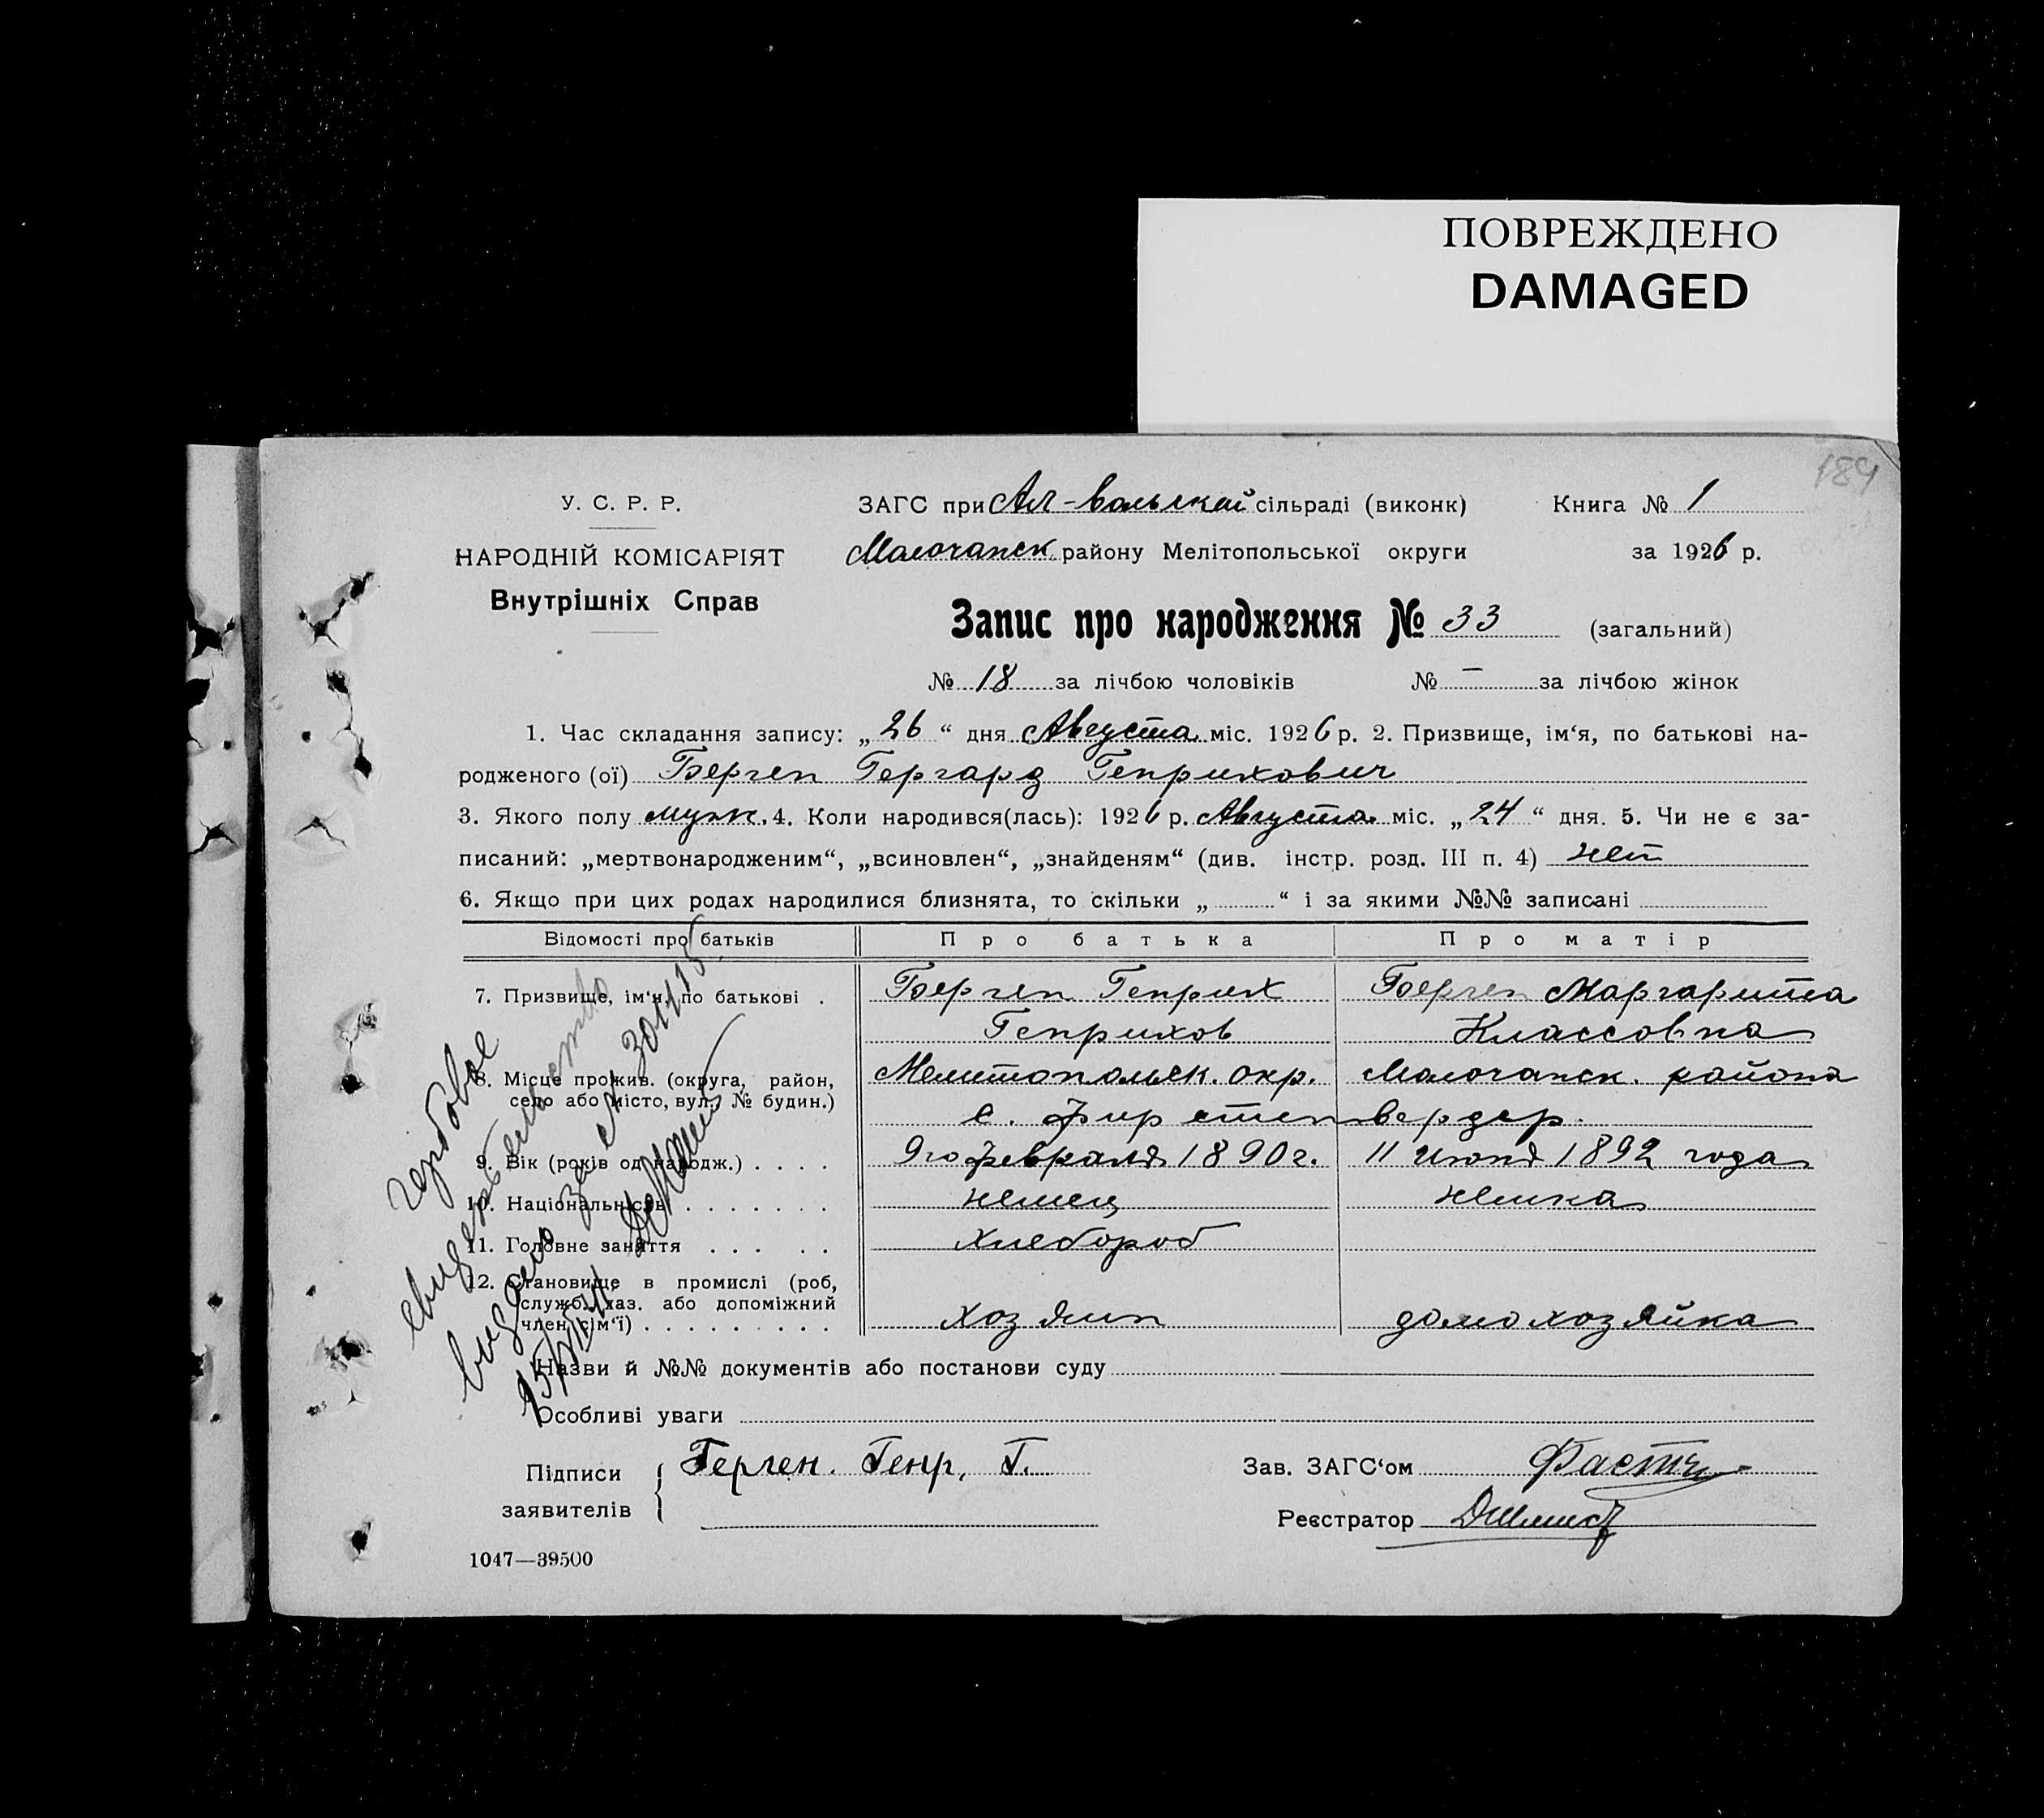 ПОВРЕЖДЕНО
DAMAGED
184
У. С. Р. Р.
НАРОДНІЙ КОМІСАРІЯТ
Внутрішніх Справ
ЗАГС при Ал-вольской сільраді (виконк)
Книга № 1
Молочанск району Мелітопольської округи
за 1926 р.
Запис про народження № 33 (загальний)
№ 18 за лічбою чоловіків № — за лічбою жінок
1. Час складання запису: „26“ дня Августа міс. 1926 р. 2. Призвище, ім‘я, по батькові на-
родженого (ої) Берген Гергард Генрихович
3. Якого полу муж. 4. Коли народився(лась): 1926 р. Августа міс. „24“ дня. 5. Чи не є за-
писаний: „мертвонародженим“, „всиновлен“, „знайденям“ (див. інстр. розд. III п. 4) нет
6. Якщо при цих родах народилися близнята, то скільки „ “ і за якими №№ записані
Відомості про батьків Про батька Про матір
7. Призвище, ім‘я, по батькові . Берген Генрих Берген Маргарита
Генрихов Классовна
8. Місце прожив. (округа, район, Мелитопольск. окр. Молочанск. района
село або місто, вул., № будин.) с. Фирстенвердер.
9. Вік (років од народж.) . . . . 9го февраля 1890 г. 11 июня 1892 года
10. Національність . . . . . . . немец немка
11. Головне заняття . . . . . хлебороб
12. Становище в промислі (роб,
служб., хаз. або допоміжний
член сім‘ї) . . . . . . . . . хозяин домохозяйка
Назви й №№ документів або постанови суду
Особливі уваги
гербовое
свидетельство
выдано за №
Підписи заявителів { Герген. Генр. Г.
Зав. ЗАГС‘ом Фаст
Реєстратор
1047—39500